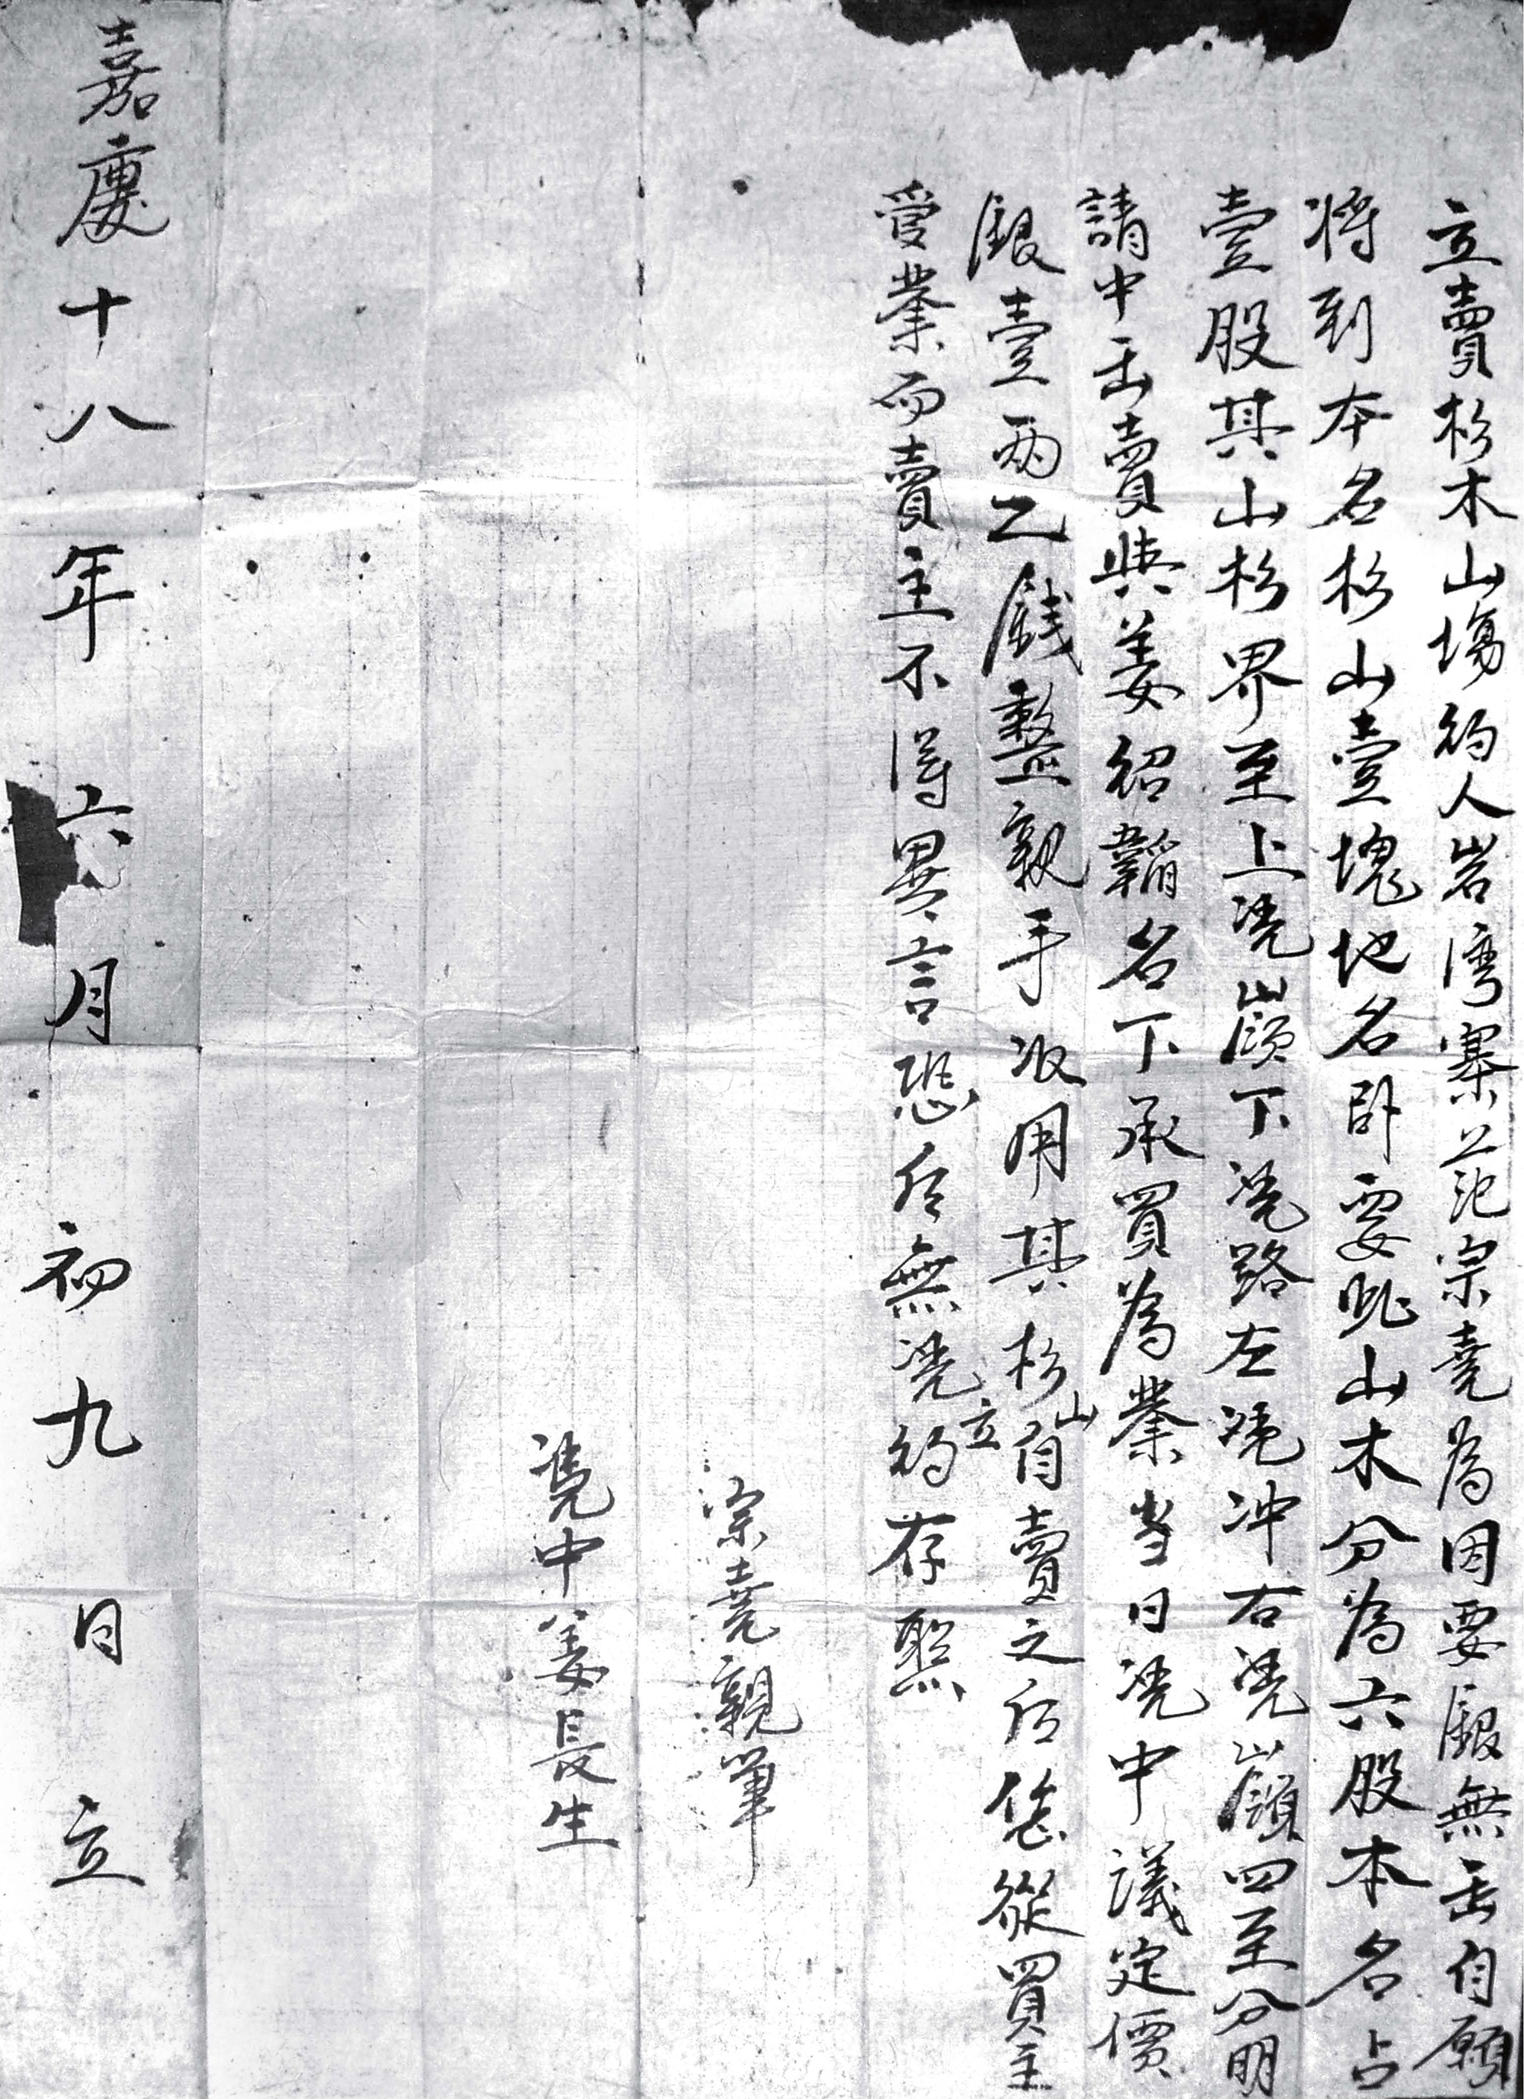 立賣杉木山塲約人岩湾寨范宗堯為因要銀無出自願
将到本名杉山壹塊地名卧要此山木分為六股本名占
壹股其山杉界至上凴嶺下凴路左凴冲右凴嶺四至分明
請中出賣與姜紹韜名下承買為業当日凴中議定價
銀壹兩乙錢整親手収用其杉山自賣之后恁從買主
受業而賣主不得異言恐后無凴立約存照
宗堯親筆
凴中姜長生
嘉慶十八年六月初九日立